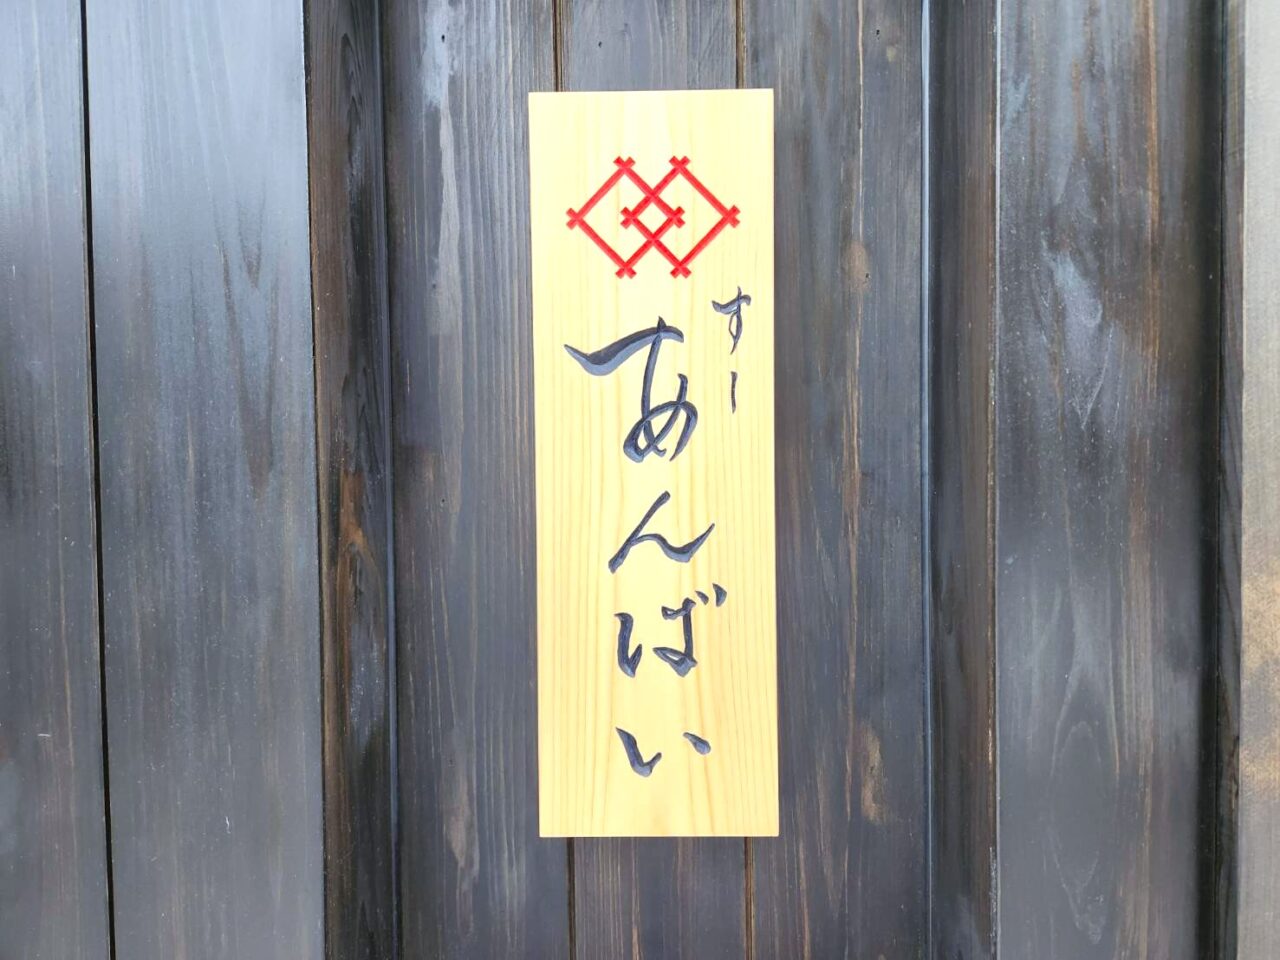 すー
あんばい